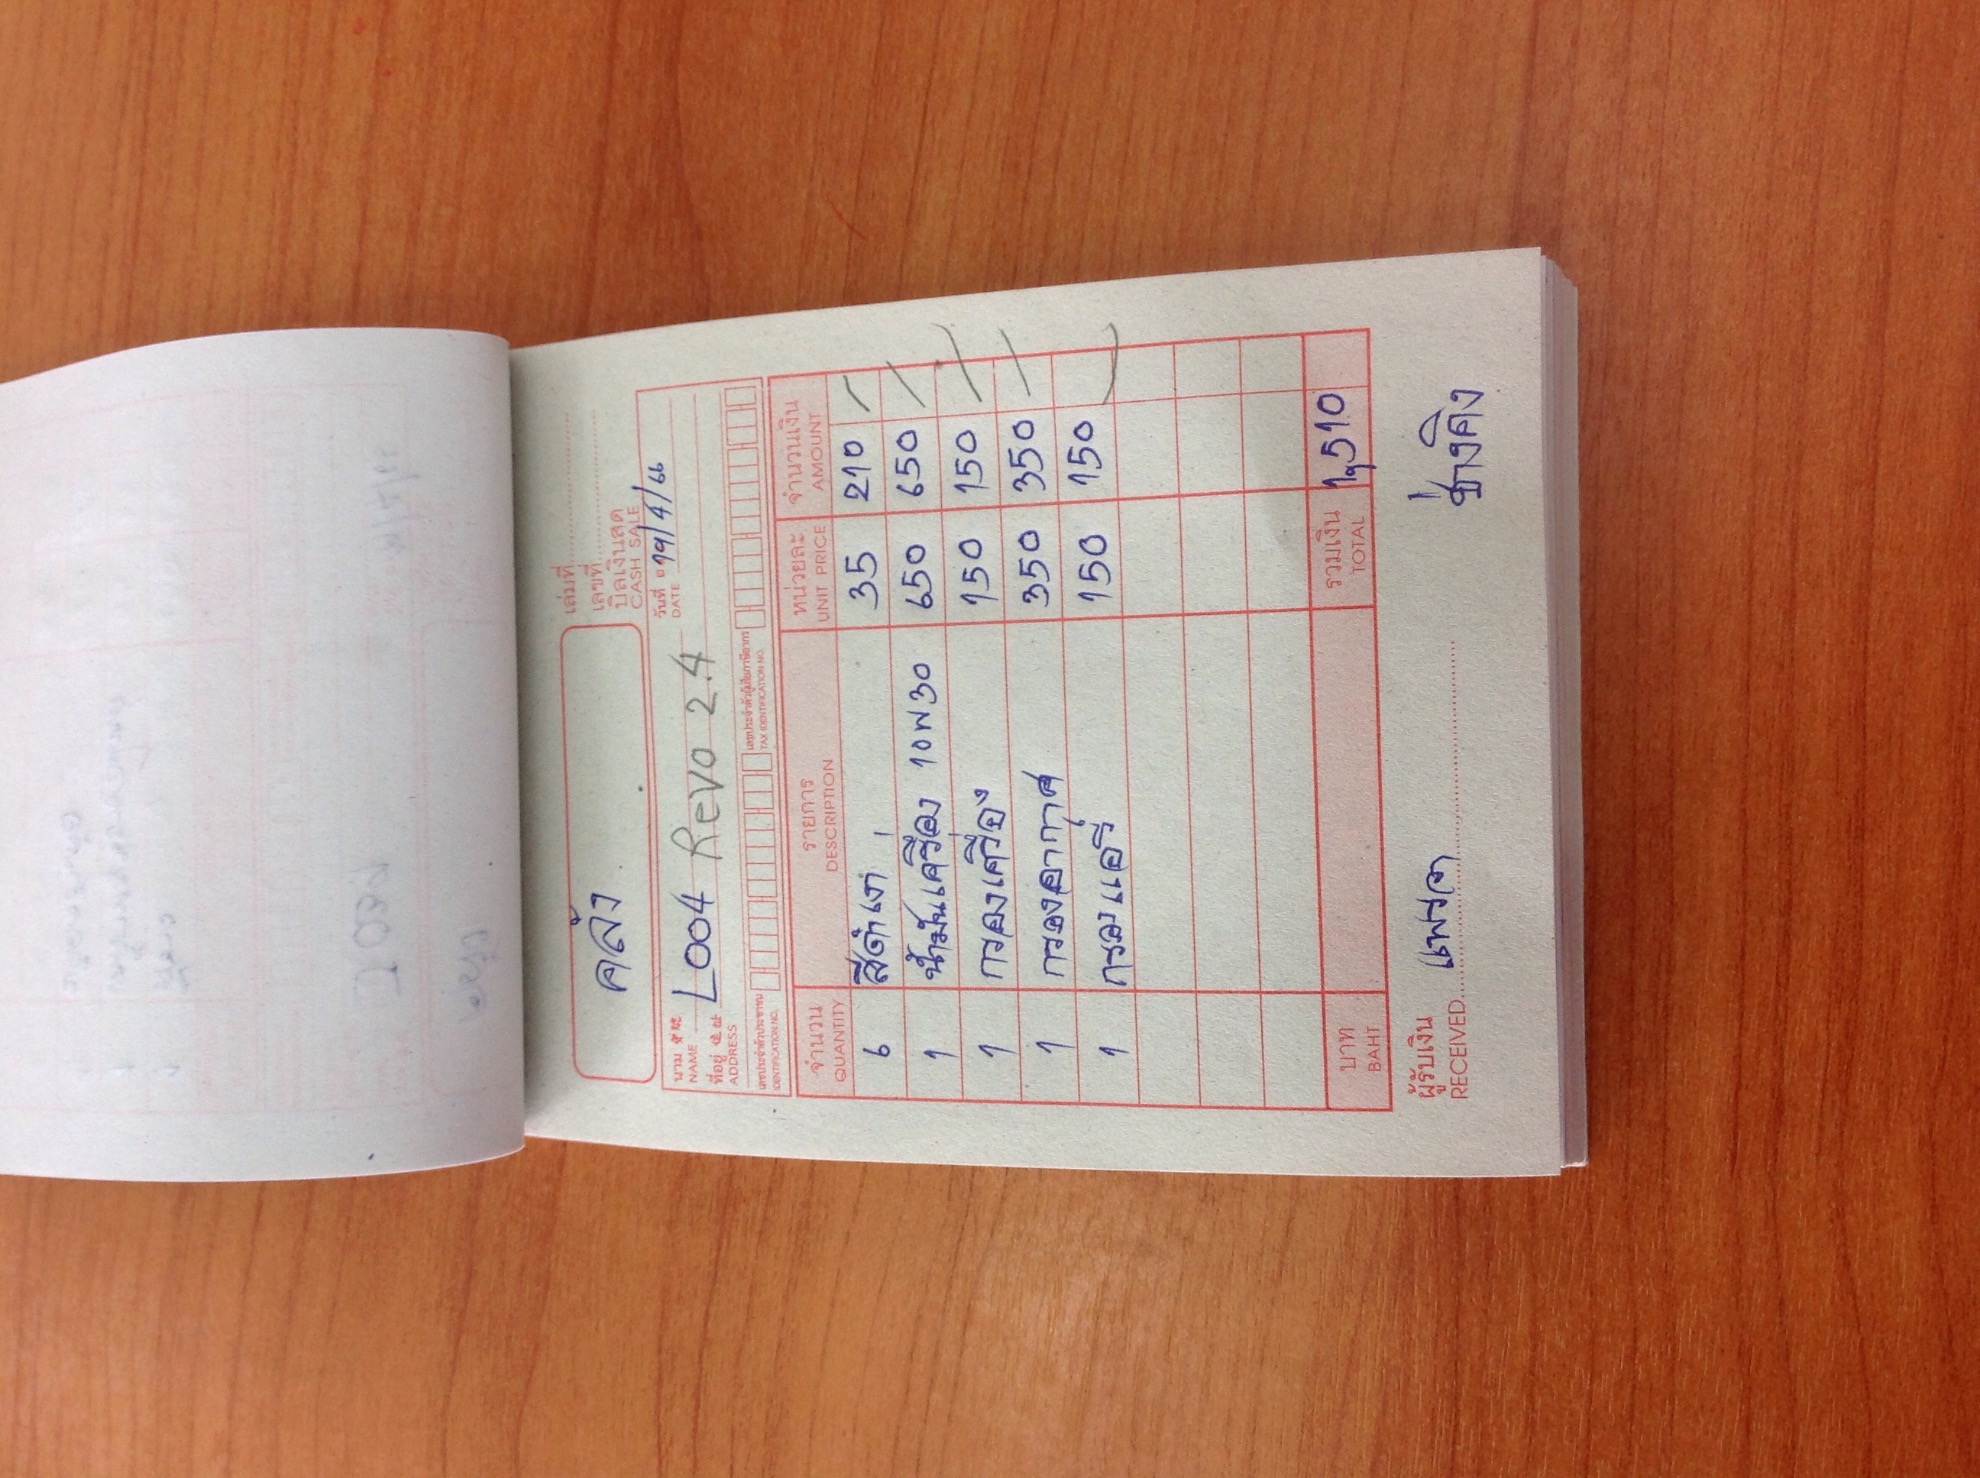 เล่มที่
เลขที่
บิลเงินสด
CASH SALE
คลัง
วันที่ 19/4/66
DATE
นาม
NAME
L004 Revo 2.4
ที่อยู่
ADDRESS
เลขประจำตัวประชาชน
IDENTIFICATION NO.
เลขประจำตัวผู้เสียภาษีอากร
TAX IDENTIFICATION NO.
จำนวน รายการ หน่วยละ จำนวนเงิน
QUANTITY DESCRIPTION UNIT PRICE AMOUNT
6 สีดำเงา 35 210
1 น้ำมันเครื่อง 10W30 650 650
1 กรองเครื่อง 150 150
1 กรองอากาศ 350 350
1 กรองแอร์ 150 150
บาท รวมเงิน 1,510
BAHT TOTAL
ผู้รับเงิน แพรว ช่างคิง
RECEIVED